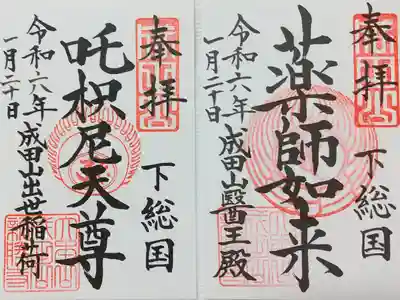 奉拝
下総国
吒枳尼天尊
令和六年
一月二十日
成田山出世稲荷
奉拝
下総国
薬師如来
令和六年
一月二十日
成田山醫王殿